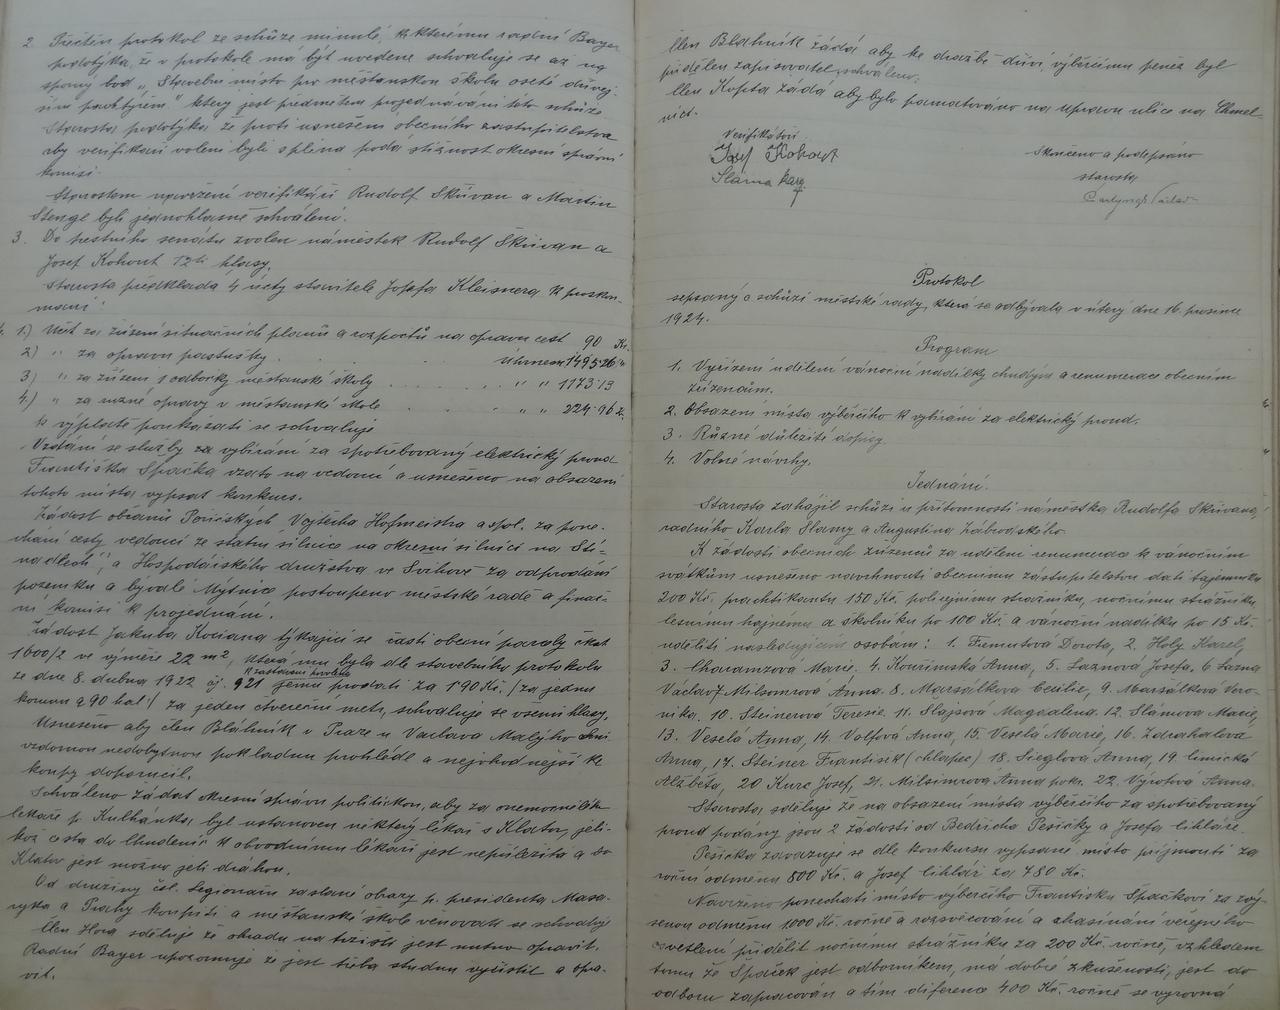 2 Přečten protokol ze schůze minulé, k kterému radní Bayer
podotýká, že v protokole má být uvedene schvaluje se až na
sporný bod „Stavební místo pro městanskou školu oseté důvej-
ším pachtýřem" který jest předmětem projednávání této schůze.
Starosta podotýká že proti usnešení obecního zastupitelstva
aby verifikáři voleni byli s plena podá stížnost okresní správní
komisi.
Starostem navržení verifikáři Rudolf Skřivan a Martin
Stengl byli jednohlasně schváleni.
3. Do trestního senátu zvolen náměstek Rudolf Skřivan a
Josef Kohout 12ti hlasy.
Starosta předkládá 4 účty stavitele Josefa Kleisnera k proskou-
mání:
4. 1.) Účet za zřízení situačních plánů a rozpočtů na opravu cest 90 Kč.
2) " za opravu pastušky . . . . úhrnem 1495·26 "
3) " za zřízení odbočky městanské školy . . . . " " 1173·13
4.) " za různé opravy v městanské škole . . . " " 224·96
k výplatě poukázati se schvaluje
Vzdání se služby za vybírání za spotřebovaný elektrický proud
Františka Spačka vzato na vědomí a usnešeno na obsazení
tohoto místa vypsat konkurs.
Žádost občanů Poříčských Vojtěcha Hofmeistra a spol. za pone-
chání cesty vedoucí ze státní silnice na okresní silnici na „Stí-
nadlech", a Hospodářského družstva ve Švihově za odprodání
pozemku a bývalé Mýtnice postoupeno městské radě a finač-
ní komisi k projednání.
Žádost Jakuba Kociana týkající se části obecní parcely čkat
1600/2 ve výměře 22 m², která mu byla dle stavebního protokolu
ze dne 8. dubna 1922 čj. 921 jemu prodati za 1·90 Kč. /za jednu
korunu a 90 hal./ za jeden čtvereční metr, schvaluje se všemi hlasy.
Usnešeno aby člen Bláhník v Praze u Václava Malýho
vzdornou nedobytnou pokladnu prohlédl a nejvhodnější ke
koupi doporučil.
Schváleno žádat okresní správu politickou, aby za onemocnělého
lékaře p. Kulhánka byl ustanoven některý lékař s Klatov, jeli-
kož cesta do Chudenic k obvodnímu lékaři jest nepříležitá a do
Klatov jest možno jeti dráhou.
Od družiny čsl. Legionářů zaslané obrazy p. presidenta Masa-
ryka a Prahy koupiti a měštanské škole věnovati se schvaluje
Člen Hora sděluje že ohradu na tržišti jest nutno opraviti.
Radní Bayer upozorňuje že jest třeba studnu vyčistit a opra-
vit.
Člen Bláhník žádá aby ke dražbě dříví, výběrčímu peněz byl
přidělen zapisovatel, schváleno.
Člen Kopta žádá aby bylo pamatováno na úpravu ulice na Chmel-
nici.
Verifikátoři
Josef Kohout
Sláma Karel
Skončeno a podepsáno
starosta
Protokol
sepsaný o schůzi městské rady, která se odbývala v úterý dne 16. prosince
1924.
Program
1. Vyřízení udílení vánoční nadílky chudým a renumerace obecním
zřízencům.
2. Obsazení místa výběrčího k vybírání za elektrický proud.
3. Různé důležité dopisy
4. Volné návrhy.
Jednání.
Starosta zahájil schůzi u přítomnosti náměstka Rudolfa Skřivana,
radního Karla Slámy a Augustina Zábrodského.
K žádosti obecních zřízenců za udělení renumerace k vánočním
svátkům usnešeno navrhnouti obecnímu zastupitelstvu dáti tajemníku
200 Kč. prachtikantu 150 Kč. policejnímu strážníku, nočnímu strážníku,
lesnímu hajnému a školníku po 100 Kč. a vánoční nadílku po 15 Kč.
uděliti následujícím osobám: 1. Fremutová Dorota, 2. Holý Karel,
3. Charamzová Marie. 4. Kouřimská Anna, 5. Laznová Josefa. 6 Lazna
Václav 7. Milsimrová Anna. 8. Maršálková Cecilie, 9. Maršálková Vero-
nika. 10. Steinerová Teresie. 11. Slajsová Magdalena. 12. Slámová Marie,
13. Veselá Anna, 14. Volfová Anna, 15. Veselá Marie, 16. Zdráhalová
Anna, 17. Steiner František (chlapec) 18. Sieglová Anna, 19. Cimická
Alžběta, 20 Kurc Josef, 21. Milsimrová Anna pokr. 22. Výrotová Anna.
Starosta sděluje že na obsazení místa výběrčího za spotřebovaný
proud podány jsou 2 žádosti od Bedřicha Pešičky a Josefa Cihláře.
Pešička zavazuje se dle konkursu vypsané místo přijmouti za
roční odměnu 800 Kč. a Josef Cihlář za 780 Kč.
Navrženo ponechati místo výběrčího Františku Spačkovi za zvý-
šenou odměnu 1000 Kč. ročně a rozsvěcování a zhasínání veřejného
osvětlení přidělit nočnímu strážníku za 200 Kč. ročně, vzhledem
tomu že Spaček jest odborníkem, má dobré zkušenosti, jest do
odboru zapracován a tím diference 400 Kč. ročně se vyrovná